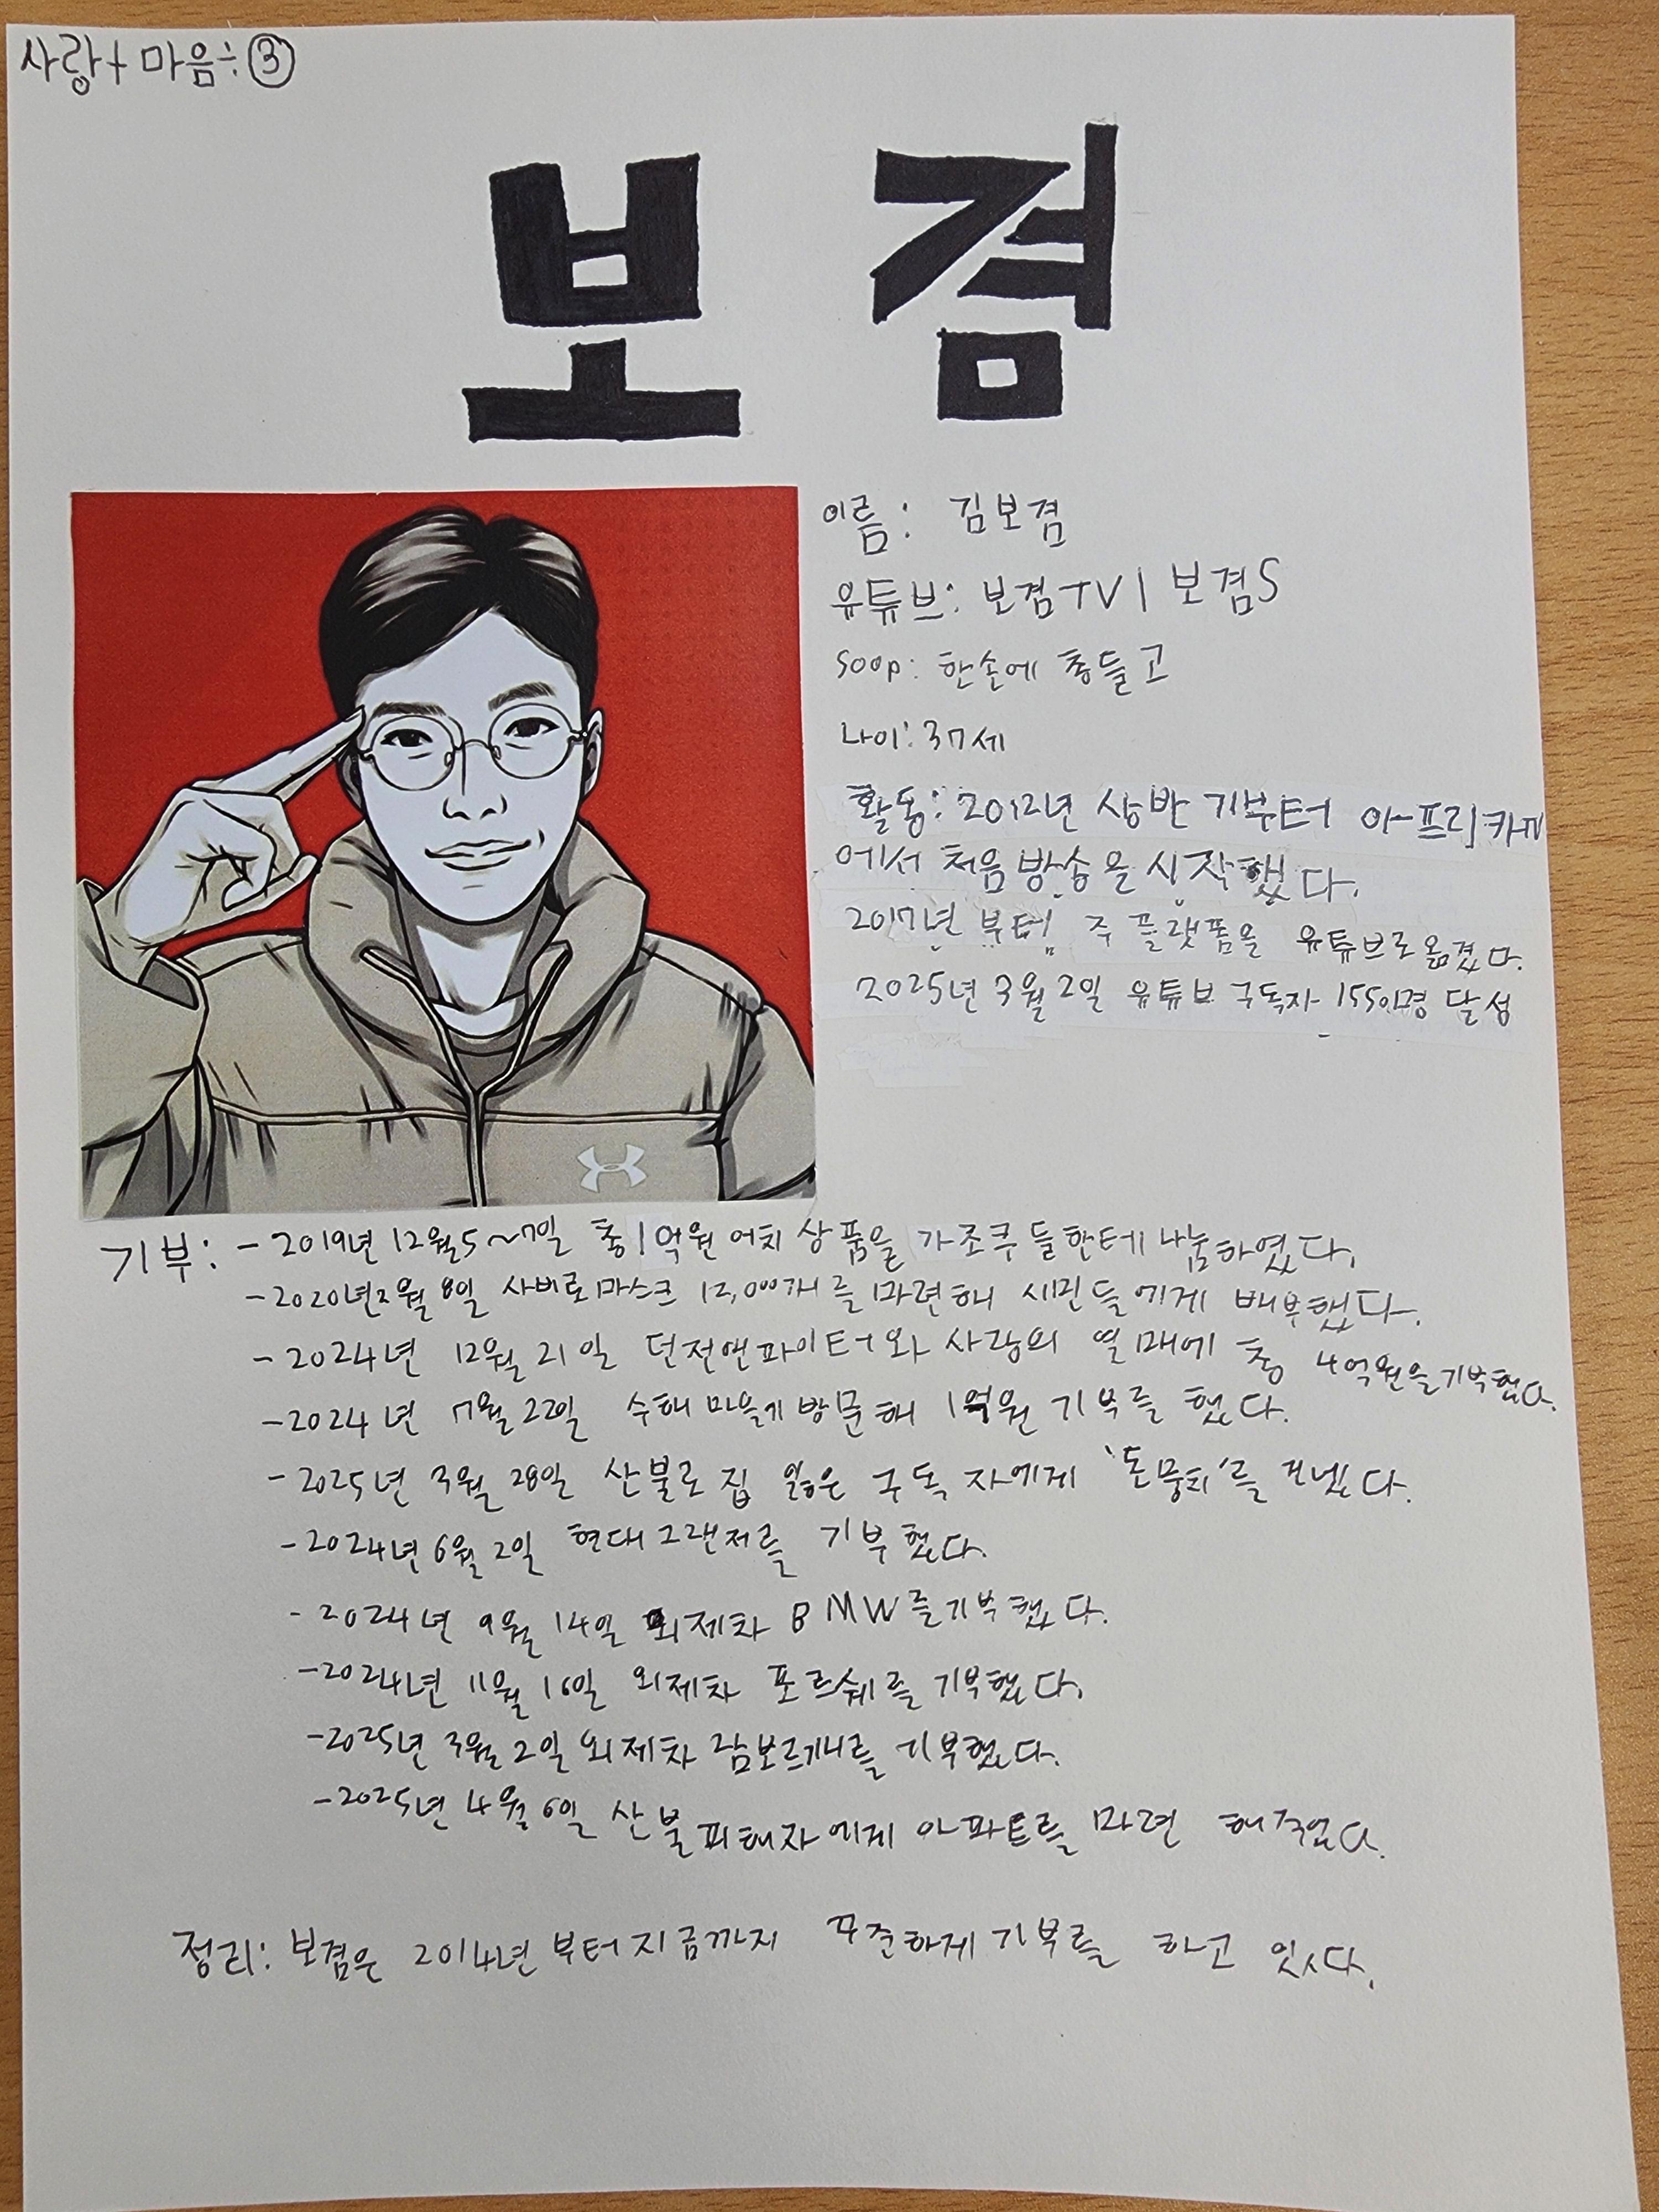 사랑+마음÷③
보겸
이름: 김보겸
유튜브: 보겸TV | 보겸S
soop: 한손에 총들고
나이: 37세
활동: 2012년 상반기부터 아프리카TV
에서 처음방송을 시작했다.
2017년 부터 주 플랫폼을 유튜브로 옮겼다.
2025년 3월 2일 유튜브 구독자 달성
기부: - 2019년 12월 5~7일 총 1억원 어치 상품을 가조쿠들한테 나눔하였다.
- 2020년 2월 8일 사비로 마스크 12,000개를 마련해 시민들에게 배부했다.
- 2024년 12월 21일 던전앤파이터와 사랑의 열매에 총 4억원을 기부했다.
- 2024년 7월 22일 수해 마을에 방문해 1억원 기부를 했다.
- 2025년 3월 28일 산불로 집 잃은 구독자에게 '돈뭉치'를 건넸다.
- 2024년 6월 2일 현대 그랜저를 기부했다.
- 2024년 9월 14일 외제차 BMW를 기부했다.
- 2024년 11월 16일 외제차 포르쉐를 기부했다.
- 2025년 3월 2일 외제차 람보르기니를 기부했다.
- 2025년 4월 6일 산불피해자에게 아파트를 마련 해주었다.
정리: 보겸은 2014년부터 지금까지 꾸준하게 기부를 하고 있다.